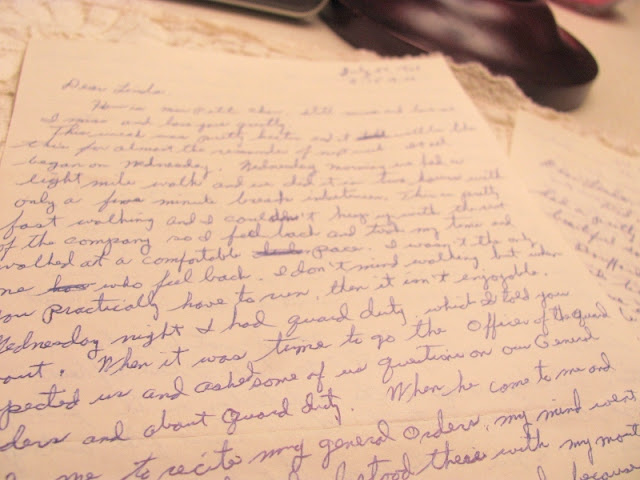 July
Dear Linda,
How is still miss and love me
I miss and love you greatly.
This week was pretty hectic and it will be like
this for almost the remainder of next week. It all
began on Wednesday. Wednesday morning we had a
eight mile walk and we did it in two hours with
only a five minute break inbetween. This is pretty
fast walking and I couldn't keep up with the rest
of the company so I fell back and took my time and
walked at a comfotable pace. I wasn't the only
one who feel back. I don't mind walking, but when
you practically have to run, then it isn't enjoyable.
Wednesday night I had guard duty, which I told you
out. When it was time to go the Officer of the guard
pected us and asked some of us questions on our General
ders and about Guard duty. When he come to me and
me to recite my general Orders, my mind went
stood there with my mout
because
Dear Linda,
had a pretty
beautiful